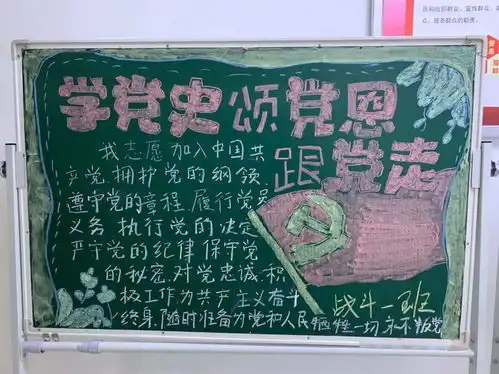 学党史颂党恩
跟党走
我志愿加入中国共
产党拥护党的纲领
遵守党的章程.履行党员
义务 执行党的决定
严守党的纪律 保守党
的秘密.对党忠诚.积
极工作为共产主义奋斗
终身.随时准备为党和人民牺牲一切 永不叛党
战斗一班